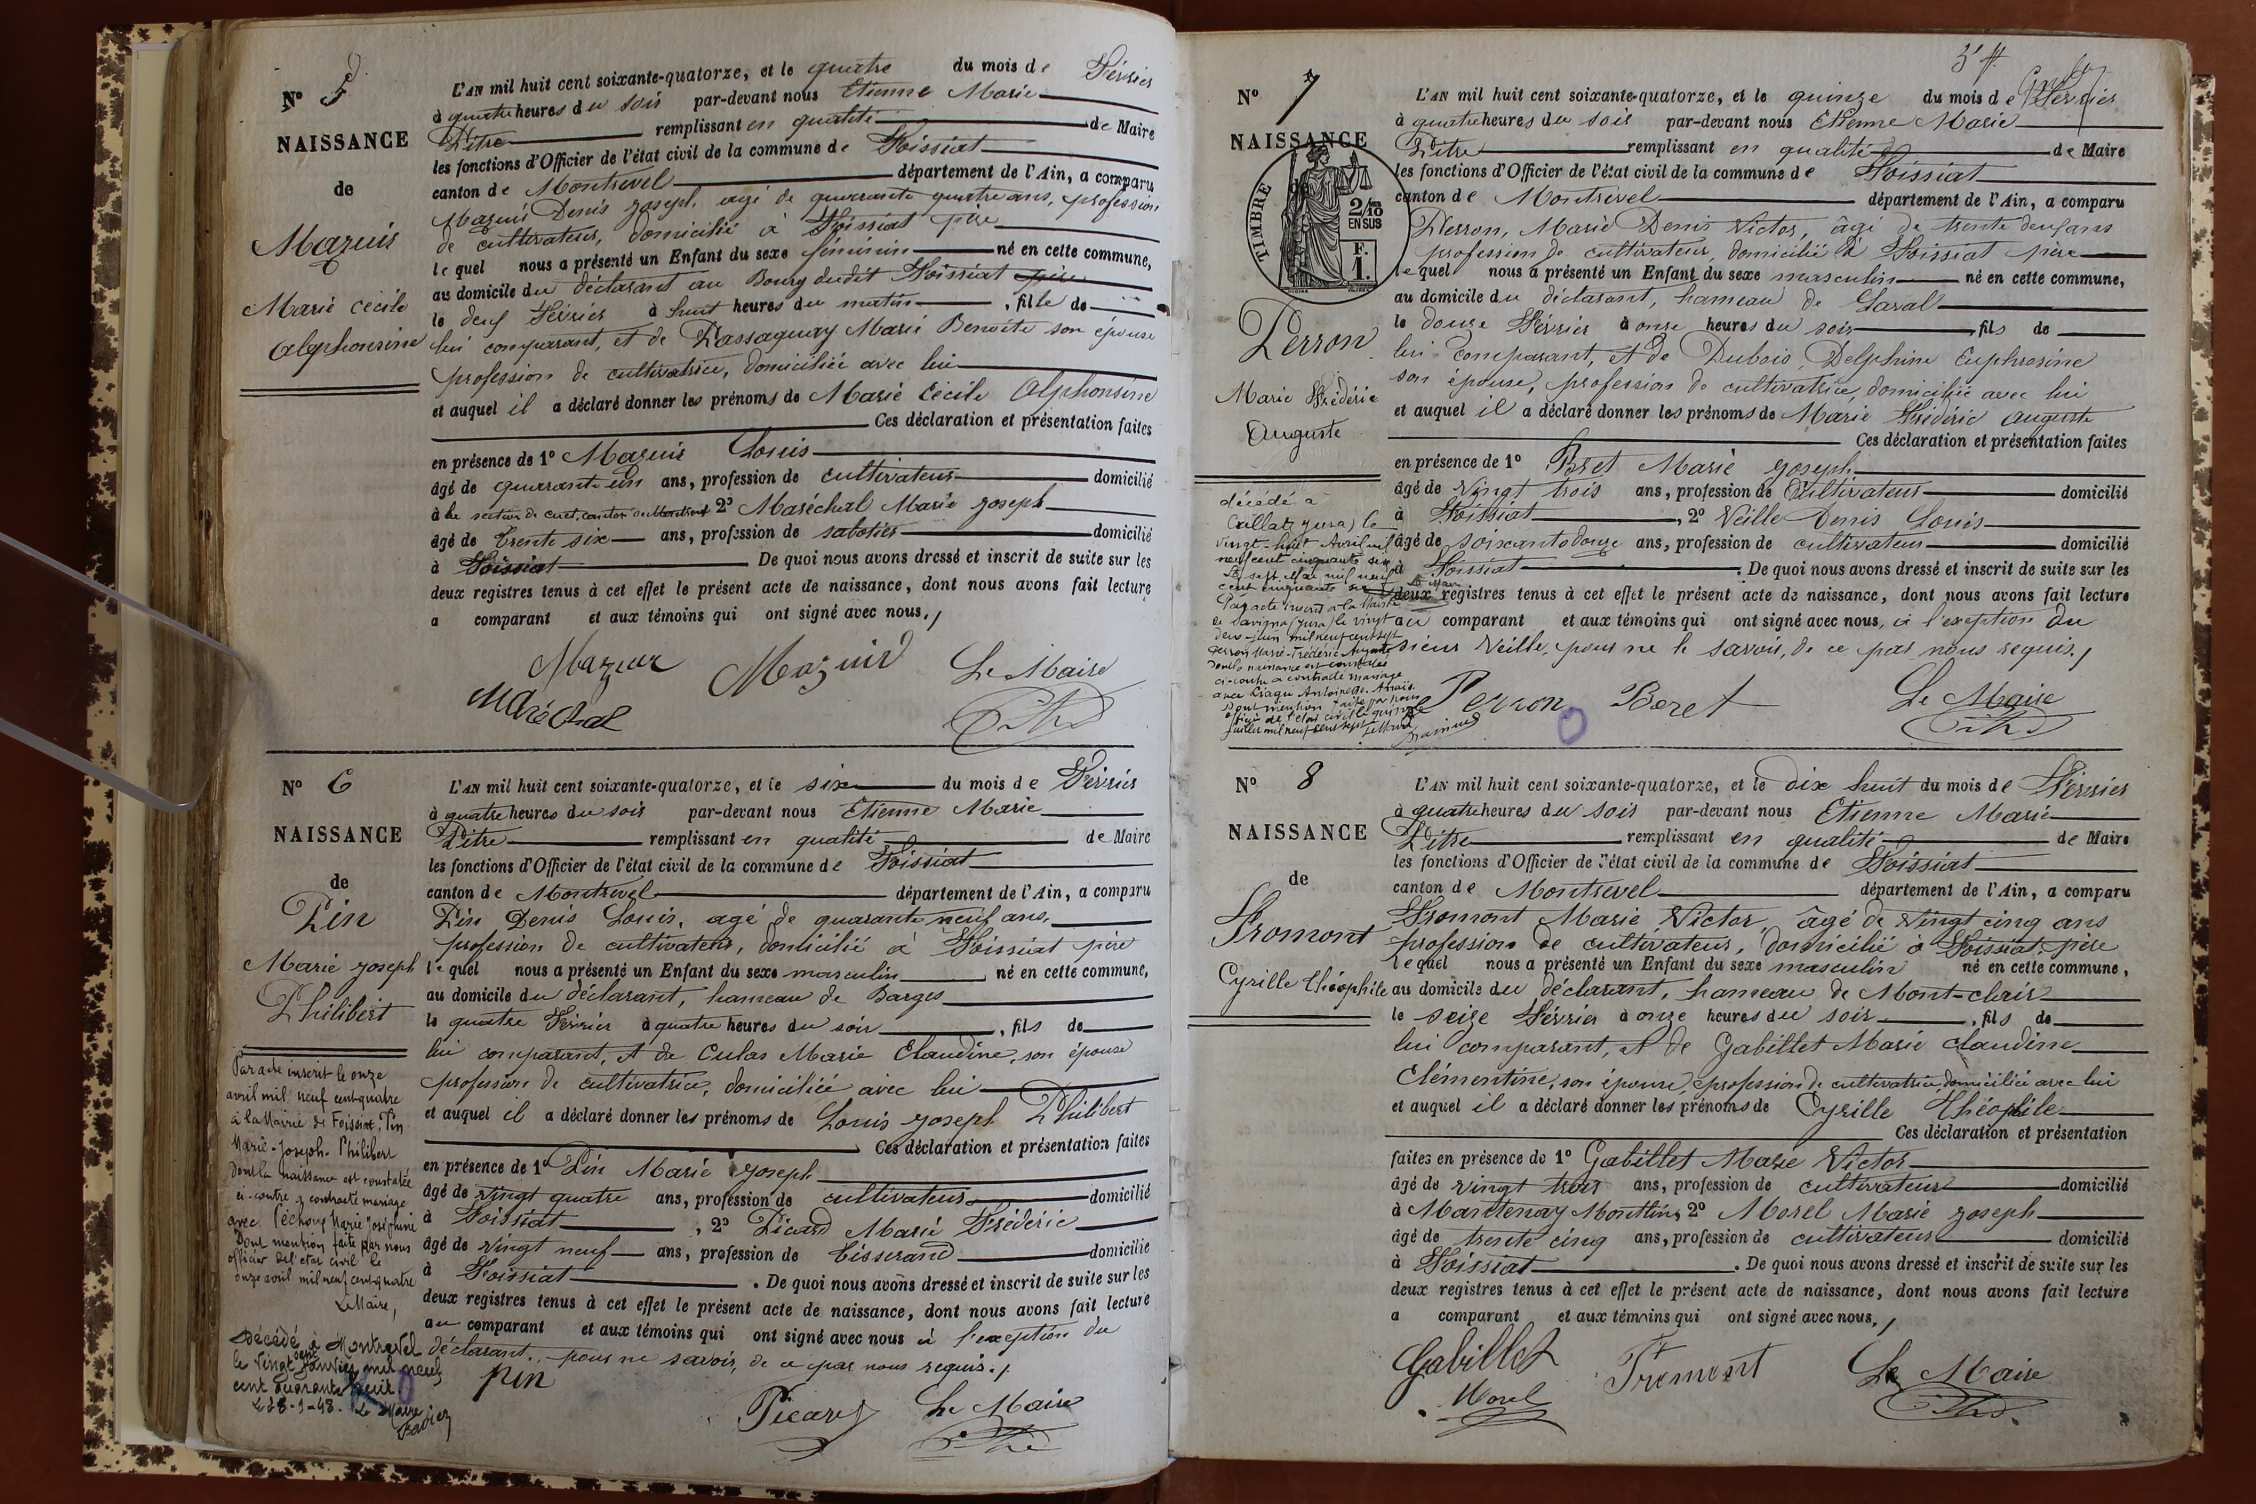 Nº 5
NAISSANCE
de
Mazuir
Marie Cécile
Alphonsine
L'AN mil huit cent soixante-quatorze, et le quatre du mois de Février
à quatre heures du soir par-devant nous Etienne Marie
Pitre remplissant en qualité de Maire
les fonctions d'Officier de l'état civil de la commune de Foissiat
canton de Montrevel département de l'Ain, a comparu
Mazuir Denis Joseph, agé de quarante quatre ans, profession
de cultivateur, domicilié à Foissiat père
lequel nous a présenté un Enfant du sexe féminin né en cette commune,
au domicile du déclarant au Bourg dudit Foissiat père
le deux Février à huit heures du matin, fille de
lui comparant, et de Passaquay Marie Benoite son épouse
profession de cultivatrice, domiciliée avec lui
et auquel il a déclaré donner les prénoms de Marie Cécile Alphonsine
Ces déclaration et présentation faites
en présence de 1º Mazuir Louis
âgé de quarante un ans, profession de cultivateur domicilié
à la section de Curet, canton de Montrevel 2º Maréchal Marie Joseph
âgé de trente six ans, profession de sabotier domicilié
à Foissiat De quoi nous avons dressé et inscrit de suite sur les
deux registres tenus à cet effet le présent acte de naissance, dont nous avons fait lecture
a comparant et aux témoins qui ont signé avec nous.
Mazuir Mazuir Le Maire
Maréchal
Nº 6
NAISSANCE
de
Pin
Marie Joseph
Philibert
Par acte inscrit le onze
avril mil neuf cent quatre
à la Mairie de Foissiat, Pin
Marie-Joseph-Philibert
dont la naissance est constatée
ci-contre a contracté mariage
avec Péchoux Marie Joséphine
Dont mention faite par nous
officier de l'état civil le
onze avril mil neuf cent quatre
Le Maire,
Décédé à Montrevel
le vingt sept Janvier mil neuf
cent quarante huit
Le 28-1-48. Le Maire
L'AN mil huit cent soixante-quatorze, et le six du mois de Février
à quatre heures du soir par-devant nous Etienne Marie
Pitre remplissant en qualité de Maire
les fonctions d'Officier de l'état civil de la commune de Foissiat
canton de Montrevel département de l'Ain, a comparu
Pin Denis Louis, agé de quarante neuf ans,
profession de cultivateur, domicilié à Foissiat père
lequel nous a présenté un Enfant du sexe masculin né en cette commune,
au domicile du déclarant, hameau de Barges
le quatre Février à quatre heures du soir, fils de
lui comparant, et de Culas Marie Claudine, son épouse
profession de cultivatrice, domiciliée avec lui
et auquel il a déclaré donner les prénoms de Louis Joseph Philibert
Ces déclaration et présentation faites
en présence de 1º Pin Marie Joseph
âgé de vingt quatre ans, profession de cultivateur domicilié
à Foissiat, 2º Picard Marie Frédéric
âgé de vingt neuf ans, profession de tisserand domicilié
à Foissiat. De quoi nous avons dressé et inscrit de suite sur les
deux registres tenus à cet effet le présent acte de naissance, dont nous avons fait lecture
au comparant et aux témoins qui ont signé avec nous à l'exception du
déclarant, pour ne savoir, de ce par nous requis.
Pin Picard Le Maire
Nº 7
NAISSANCE
TIMBRE
2/10
EN SUS
F.
1.
Perron
Marie Frédéric
Auguste
décédé à
Cuillat (Jura) le
vingt-huit Avril mil
neuf cent cinquante six
Le sept Mai mil neuf
cent cinquante six
Le Maire
Par acte inscrit à la Mairie
de Savigna (Jura) le vingt
deux juin mil neuf cent sept
Perron Marie-Frédéric Auguste
dont la naissance est constatée
ci-contre a contracté mariage
Dont mention faite par nous
officier de l'état civil le quinze
juillet mil neuf cent sept
L'AN mil huit cent soixante-quatorze, et le quinze du mois de Février
à quatre heures du soir par-devant nous Etienne Marie
Pitre remplissant en qualité de Maire
les fonctions d'Officier de l'état civil de la commune de Foissiat
canton de Montrevel département de l'Ain, a comparu
Perron, Marie Denis Victor, âgé de trente deux ans
profession de cultivateur, domicilié à Foissiat père
lequel nous a présenté un Enfant du sexe masculin né en cette commune,
au domicile du déclarant, hameau de Laval
le douze Février à onze heures du soir fils de
lui comparant, et de Dubois, Delphine Euphrosine
son épouse, profession de cultivatrice, domiciliée avec lui
et auquel il a déclaré donner les prénoms de Marie Frédéric Auguste
Ces déclaration et présentation faites
en présence de 1º Beret Marie Joseph
âgé de vingt trois ans, profession de cultivateur domicilié
à Foissiat, 2º Veille Denis Louis
âgé de soixante douze ans, profession de cultivateur domicilié
à Foissiat. De quoi nous avons dressé et inscrit de suite sur les
deux registres tenus à cet effet le présent acte de naissance, dont nous avons fait lecture
au comparant et aux témoins qui ont signé avec nous, à l'exception du
sieur Veille, pour ne le savoir, de ce par nous requis.
Perron Beret Le Maire
Nº 8
NAISSANCE
de
Fromont
Cyrille Théophile
L'AN mil huit cent soixante-quatorze, et le dix huit du mois de Février
à quatre heures du soir par-devant nous Etienne Marie
Pitre remplissant en qualité de Maire
les fonctions d'Officier de l'état civil de la commune de Foissiat
canton de Montrevel département de l'Ain, a comparu
Fromont Marie Victor, âgé de vingt cinq ans
profession de cultivateur, domicilié à Foissiat, père
lequel nous a présenté un Enfant du sexe masculin né en cette commune,
au domicile du déclarant, hameau de Mont-clair
le seize Février à onze heures du soir, fils de
lui comparant, et de Gabillet Marie Claudine
Clémentine, son épouse, profession de cultivatrice, domiciliée avec lui
et auquel il a déclaré donner les prénoms de Cyrille Théophile
Ces déclaration et présentation
faites en présence de 1º Gabillet Marie Victor
âgé de vingt trois ans, profession de cultivateur domicilié
à Mantenay Montlin, 2º Morel Marie Joseph
âgé de trente cinq ans, profession de cultivateur domicilié
à Foissiat. De quoi nous avons dressé et inscrit de suite sur les
deux registres tenus à cet effet le présent acte de naissance, dont nous avons fait lecture
a comparant et aux témoins qui ont signé avec nous,
Gabillet Fromont Le Maire
Morel